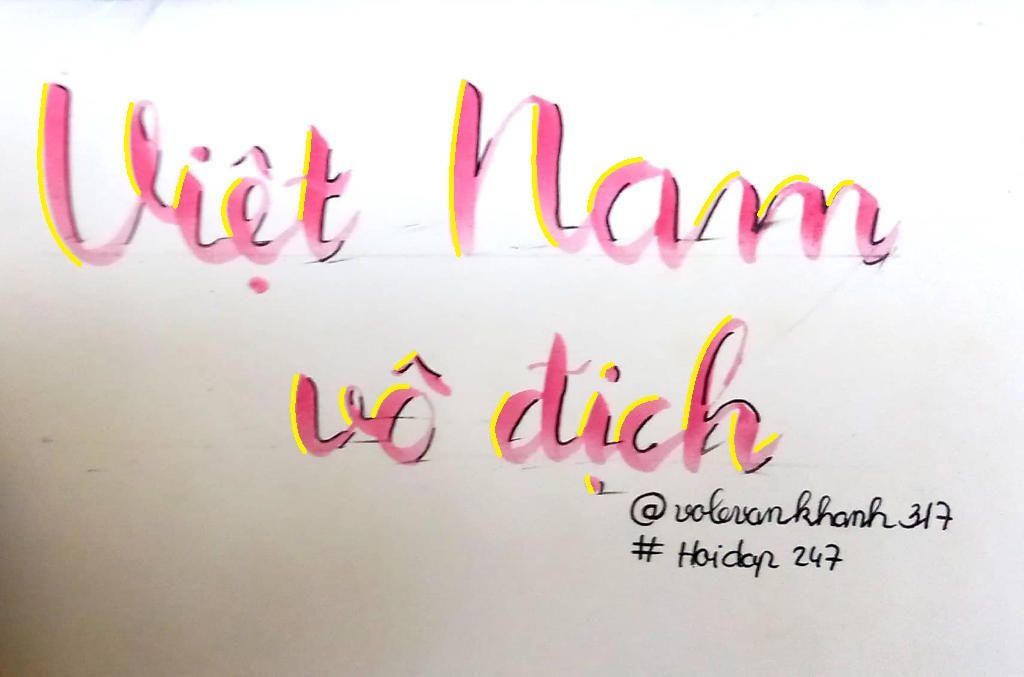 Việt Nam
vô địch
@volevankhanh317
# Hoidap 247